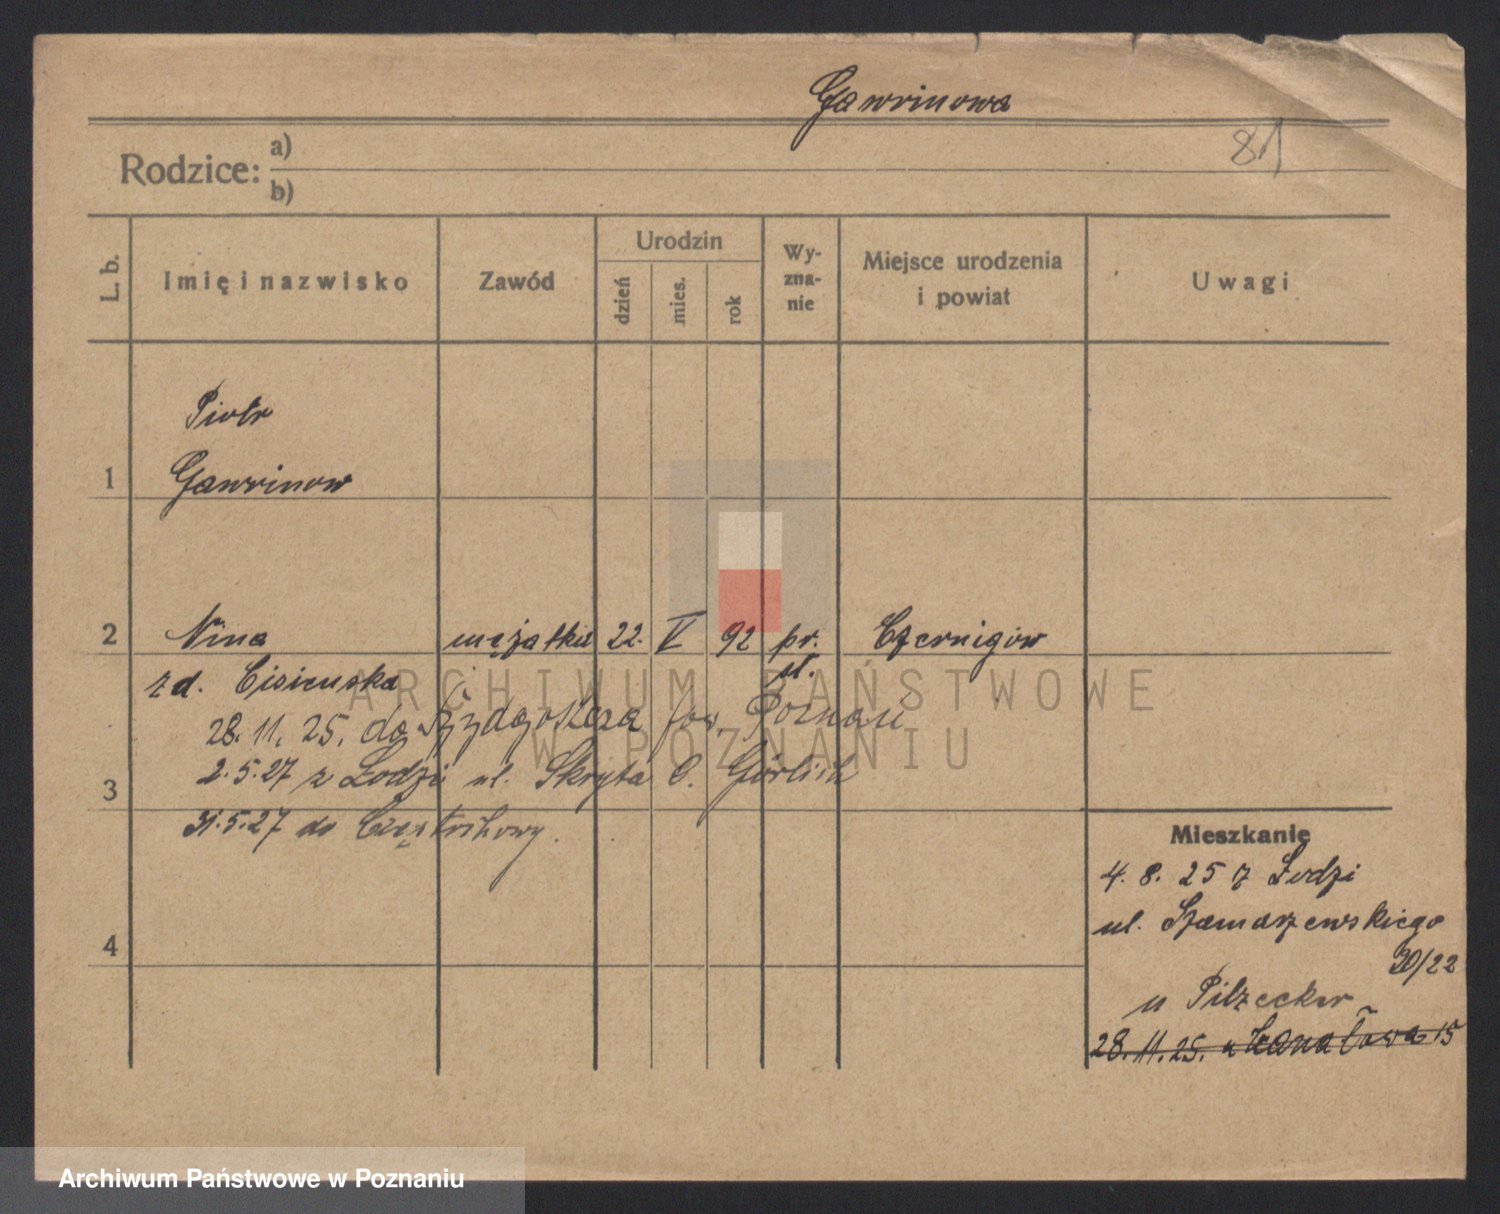 Gawrinowa
81
Rodzice: a)
b)
L. b.
Imię i nazwisko
Zawód
Urodzin
dzień
mies.
rok
Wy-
zna-
nie
Miejsce urodzenia
i powiat
Uwagi
Piotr
1 Gawrinow
2 Nina mężatka 22. V 92 pr. Czernigów
st.
zd. Cisieuska
28. 11. 25. do Bydgoszcza pow. Poznań
2. 5. 27 z Łodzi ul. Skryta 6. Görlich
3
31. 5. 27 do Częstochowy.
4
Mieszkanie
4. 8. 25 z Łodzi
ul. Szamarzewskiego
20/22
u Pilzecker
28. 11. 25. u Kanałowa 15
ARCHIWUM PAŃSTWOWE
W POZNANIU
Archiwum Państwowe w Poznaniu